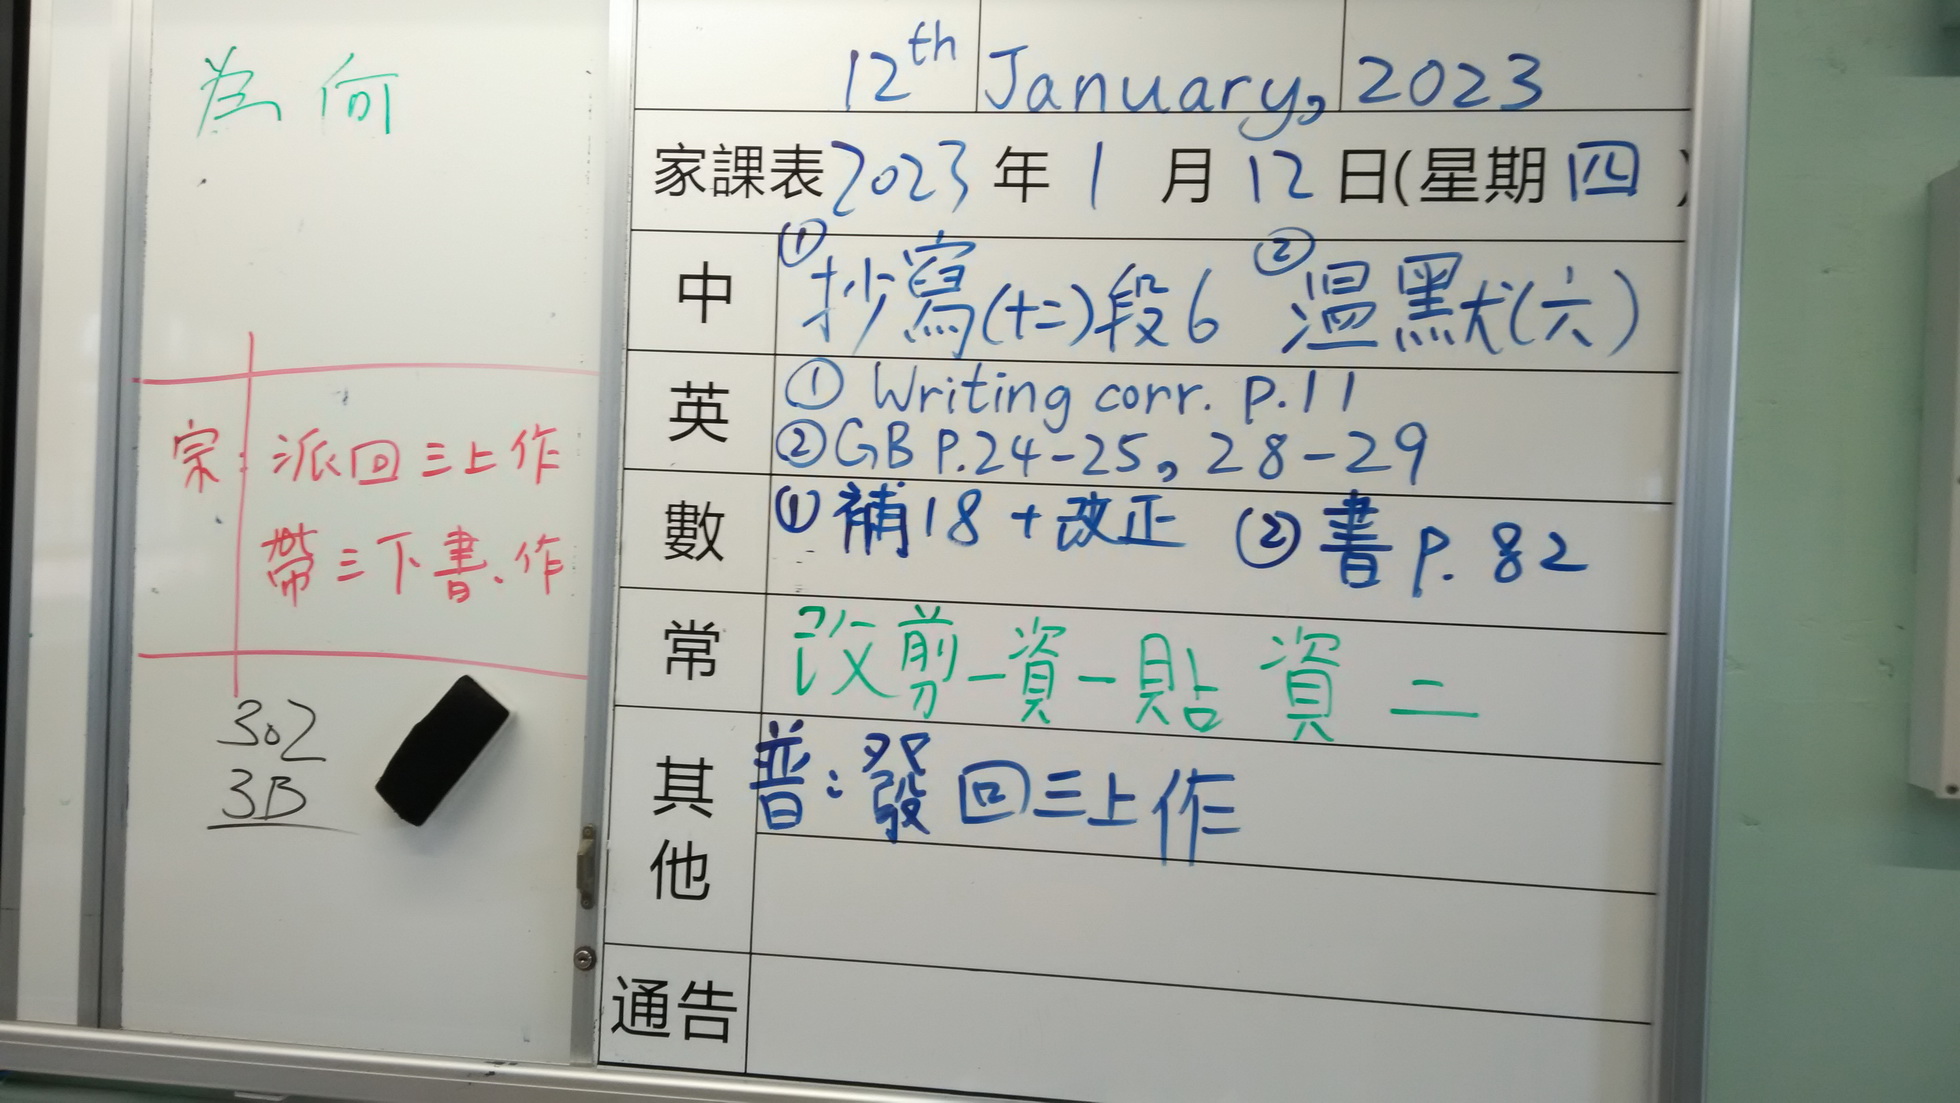 為何
宗: 派回三上作
帶三下書、作
302
3B
12th January, 2023
家課表 2023 年 1 月 12 日(星期 四 )
中 ①抄寫(十二)段6 ②溫默(六)
英 ① Writing corr. P.11
② GB P.24-25, 28-29
數 ①補18+改正 ②書P.82
常 改剪一資一貼資二
其他 普:發回三上作
通告